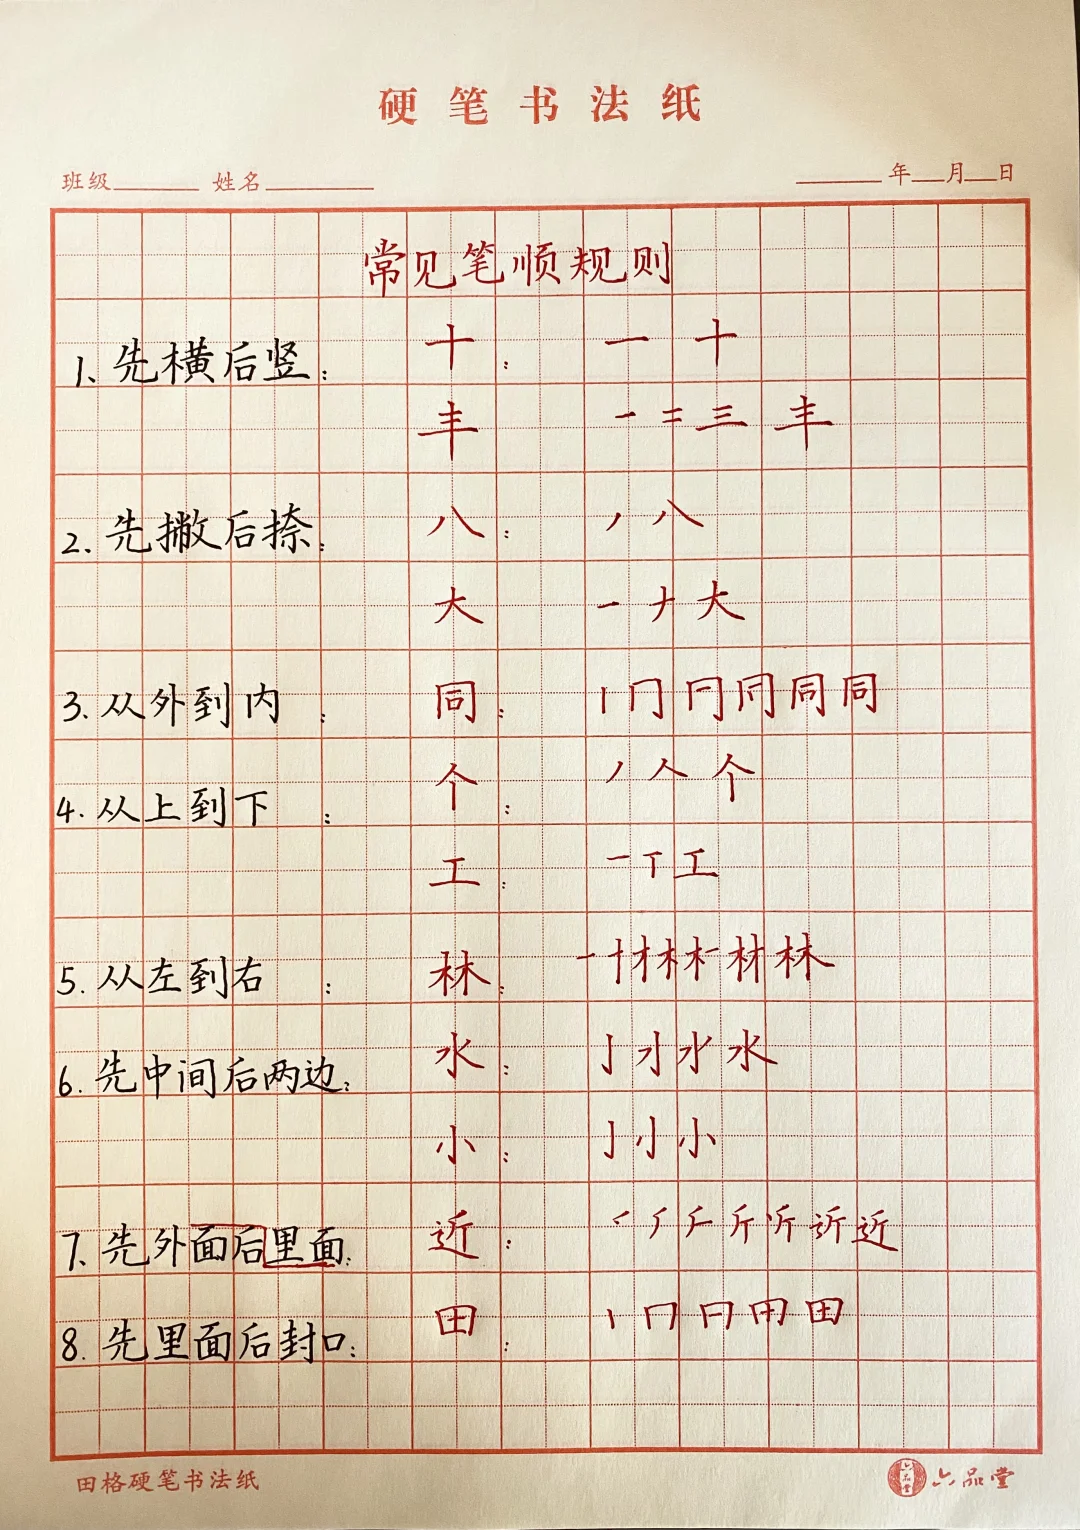 硬笔书法纸
班级 姓名 年 月 日
常见笔顺规则
1、先横后竖: 十: 一 十
丰 一 二 三 丰
2.先撇后捺: 八: 丿 八
大 一 ナ 大
3.从外到内: 同: 丨 冂 同 同
4.从上到下: 个: 丿 人 个
工: 一 丅 工
5.从左到右: 林: 一 十 才 木 林
6.先中间后两边: 水: 亅 水
小: 亅 小
7、先外面后里面: 近: 斤 近
8.先里面后封口: 田: 丨 冂 田
田格硬笔书法纸 六品堂 六品堂